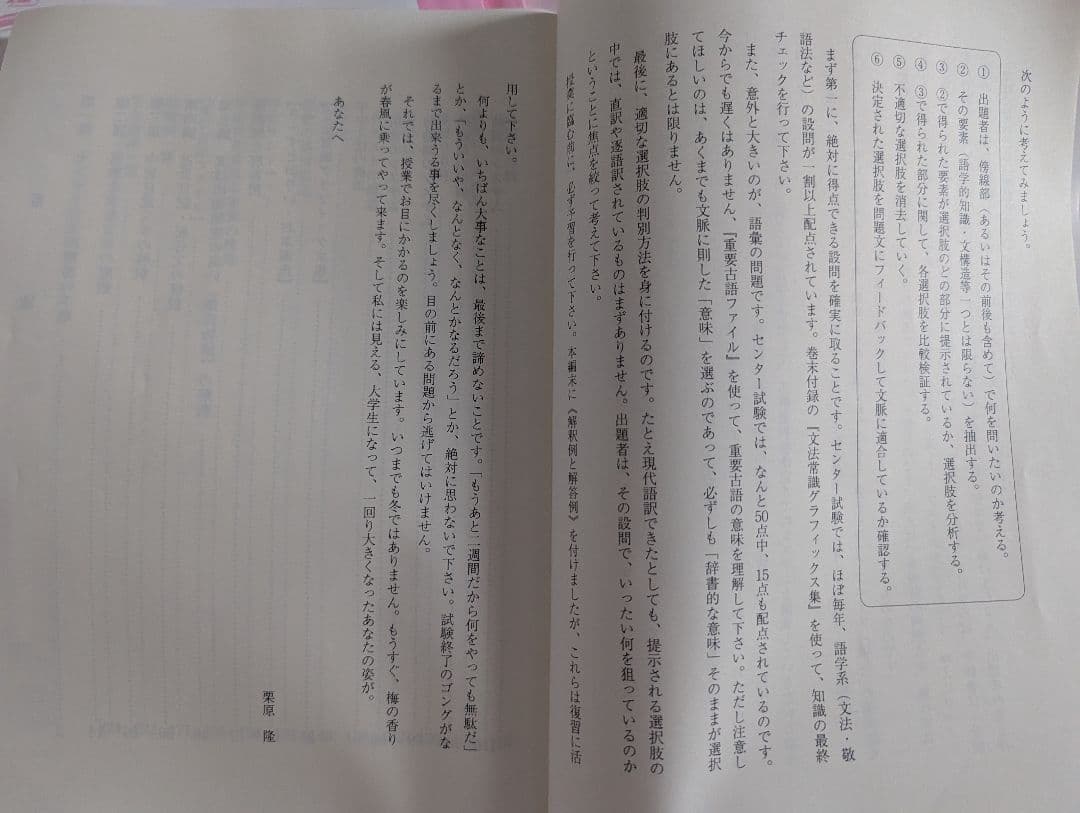 次のように考えてみましょう。
① 出題者は、傍線部（あるいはその前後も含めて）で何を問いたいのか考える。
② その要素（語学的知識・文構造等一つとは限らない）を抽出する。
③ ②で得られた要素が選択肢のどの部分に提示されているか、選択肢を分析する。
④ ③で得られた部分に関して、各選択肢を比較検証する。
⑤ 不適切な選択肢を消去していく。
⑥ 決定された選択肢を問題文にフィードバックして文脈に適合しているか確認する。
まず第一に、絶対に得点できる設問を確実に取ることです。センター試験では、ほぼ毎年、語学系（文法・敬
語法など）の設問が一割以上配点されています。巻末付録の『文法常識グラフィックス集』を使って、知識の最終
チェックを行って下さい。
また、意外と大きいのが、語彙の問題です。センター試験では、なんと50点中、15点も配点されているのです。
今からでも遅くはありません、『重要古語ファイル』を使って、重要古語の意味を理解して下さい。ただし注意し
てほしいのは、あくまでも文脈に則した「意味」を選ぶのであって、必ずしも「辞書的な意味」そのままが選択
肢にあるとは限りません。
最後に、適切な選択肢の判別方法を身に付けるのです。たとえ現代語訳できたとしても、提示される選択肢の
中では、直訳や逐語訳されているものはまずありません。出題者は、その設問で、いったい何を狙っているのか
ということに焦点を絞って考えて下さい。
授業に臨む前に、必ず予習を行って下さい。本編末に《解釈例と解答例》を付けましたが、これらは復習に活
用して下さい。
何よりも、いちばん大事なことは、最後まで諦めないことです。「もうあと二週間だから何をやっても無駄だ」
とか、「もういいや、なんとなく、なんとかなるだろう」とか、絶対に思わないで下さい。試験終了のゴングがな
るまで出来うる事を尽くしましょう。目の前にある問題から逃げてはいけません。
それでは、授業でお目にかかるのを楽しみにしています。いつまでも冬ではありません。もうすぐ、梅の香り
が春風に乗ってやって来ます。そして私には見える、大学生になって、一回り大きくなったあなたの姿が。
あなたへ
栗原 隆